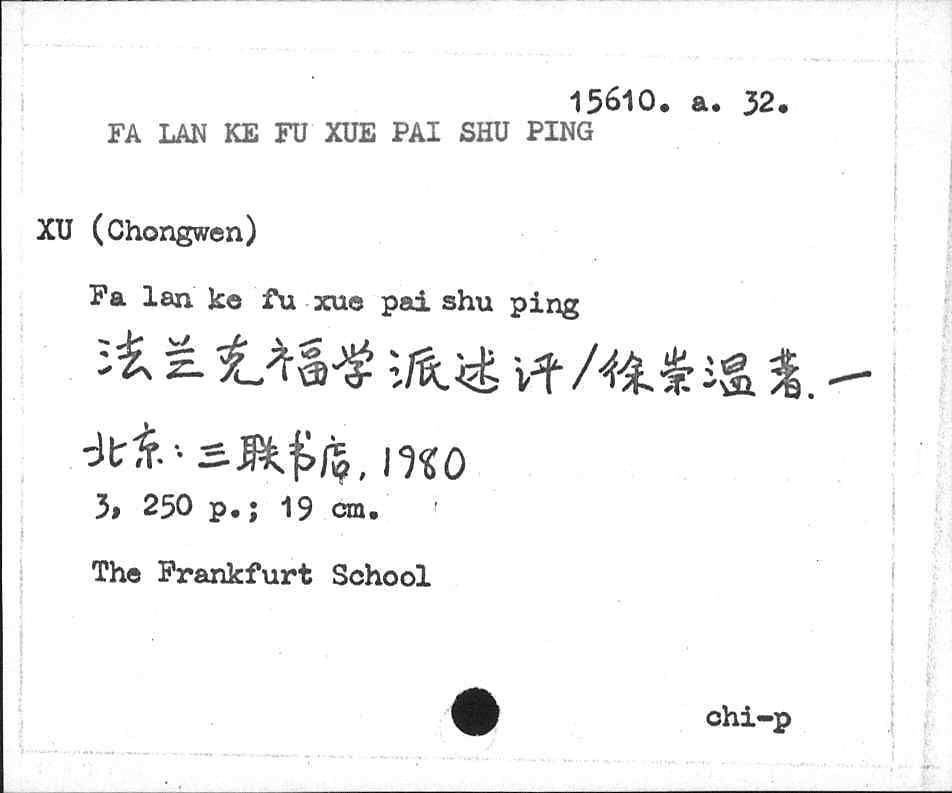 15610. a. 32.
FA LAN KE FU XUE PAI SHU PING
XU (Chongwen)
Fa lan ke fu xue pai shu ping
法兰克福学派述评/徐崇温著.—
北京：三联书店, 1980
3, 250 p.; 19 cm.
The Frankfurt School
chi-p